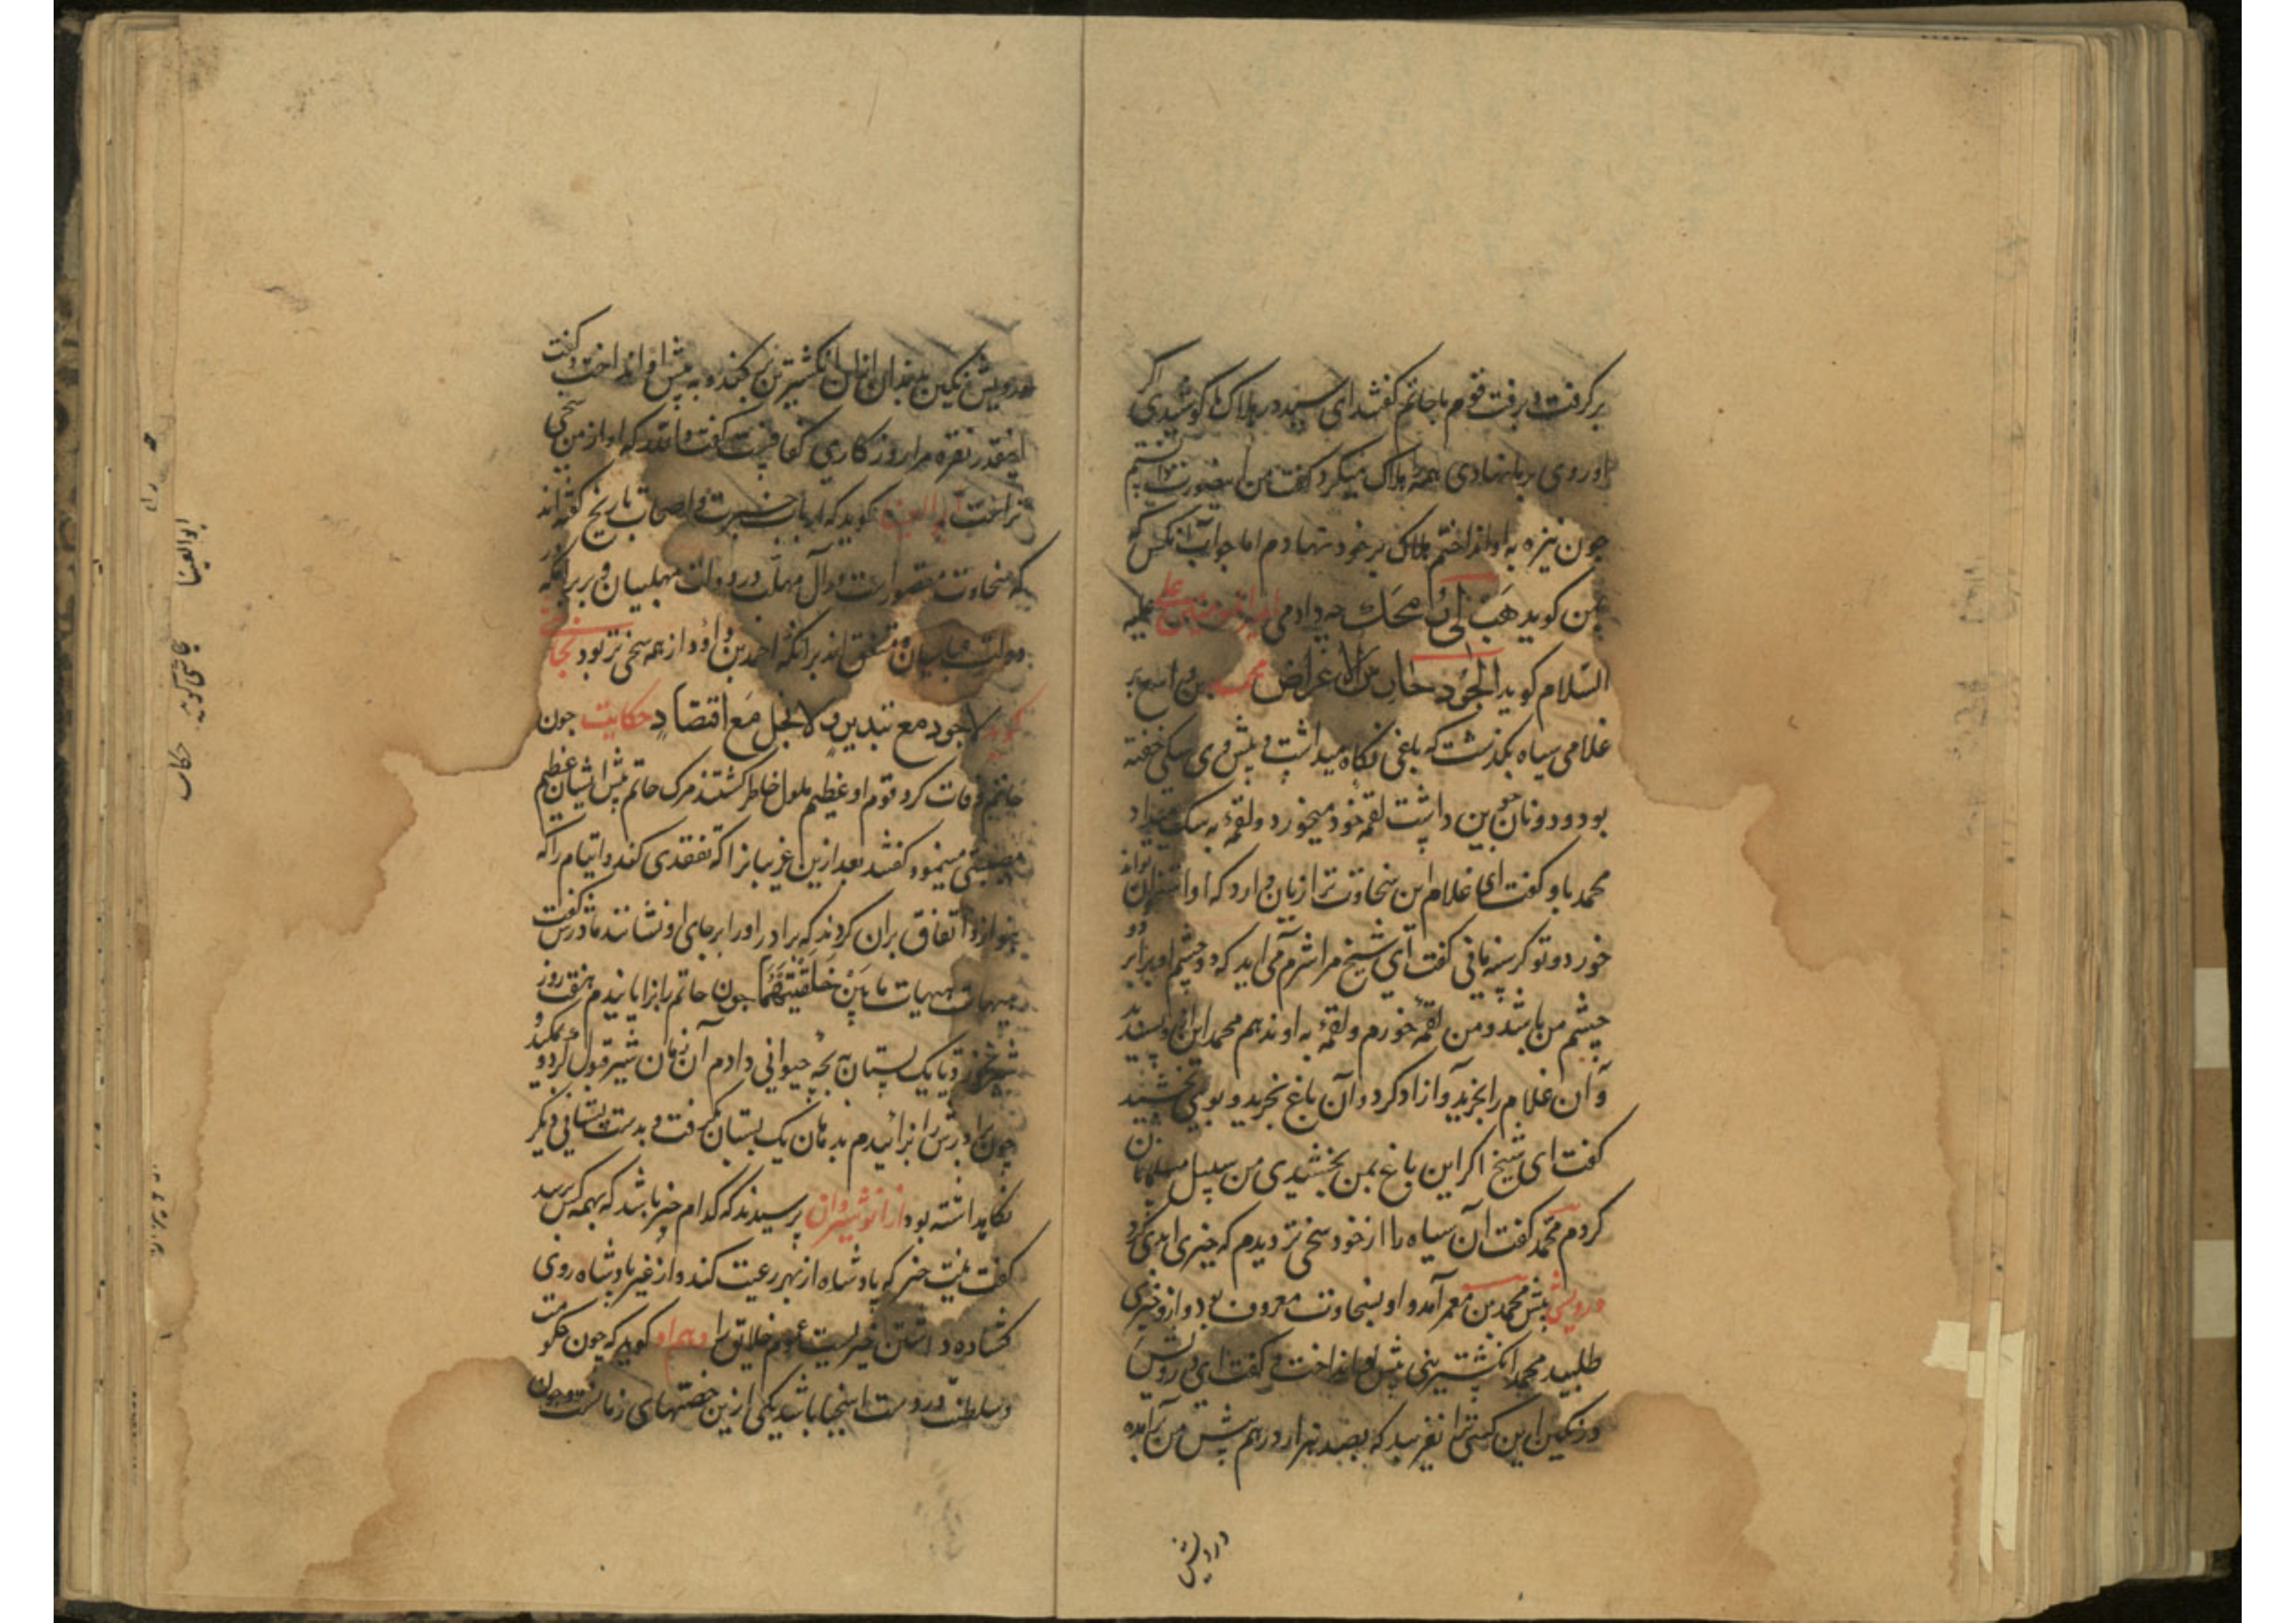 برکرفت و برفت قوم با حاتم کفتند ای سید در هلاک ما کوشیدی اکر
او روی بر ما نهادی همه را هلاک میکرد کفت من این صورت دانستم
جون نیزه به او انداختم هلاک بر خود نهادم اما جواب آنکس که
بمن کوید هَب لی رُمحَک چه دادمی امیرالمومنین علی علیه
السلام کوید الجُود خالٍ من الاَغراض محمد بن واسع بر
غلامی سیاه بکذشت که باغی نکاه میداشت و پیش وی سکی خفته
بود و دو نان جوین داشت لقمه خود میخورد و لقمهٔ به سک میداد
محمد باو کفت ای غلام این سخاوت ترا زیان دارد که او این نان تواند
خورد و تو کرسنه مانی کفت ای شیخ مرا شرم می اید که دو چشم او برابر دو
چشم من باشد و من لقمهٔ خورم و لقمهٔ به او ندهم محمد این را پسندید
و آن غلام را بخرید و ازاد کرد و آن باغ بخرید و بوی بخشید
کفت ای شیخ اکر این باغ بمن بخشیدی من سبیل مسلمانان
کردم محمد کفت آن سیاه را از خود سخی تر دیدم که خیری ابدی کرد
درویشی پیش محمد بن معمر آمد و او بسخاوت معروف بود و ازو خیری
طلبید محمد انکشترینی پیش او انداخت و کفت ای درویش
در نکین این کسی ترا نفریبد که بصد هزار درهم پیش من برآمده
درویش
درویش نکین بدندان ازان انکشترین برکند و به پیش او انداخت و کفت
اینقدر نقره مرا روزکاری کفافست کفت والله که او از من سخی
تراست ابوالعینا کوید که ارباب خبرت و اصحاب تاریخ کفته اند
که سخاوت مقصورست در آل مهلب در دولت مهلبیان و بر برامکه در
دولت عباسیان و متفق اند برانکه احمد بن داود از همه سخی تر بود نجاشی
کوید لا جود مع تبذیر و لا بخل مَع اقتصادٍ حکایت جون
حاتم وفات کرد قوم او عظیم ملول خاطر کشتند مرک حاتم پیش ایشان عظیم
مصیبتی مینمود کفتند بعد ازین غریبانرا که تفقدی کند و ایتام را که
بنوازد اتفاق بران کردند که برادر او را بر جای او نشانند مادرش کفت
هیهات هیهات ما بَینَ خَلقَتَیهُما جون حاتم را بزایانیدم هفت روز
شیر نخورد تا یک پستان به بچه حیوانی دادم آن زمان شیر قبول کرد و بمکید و
چون برادرش را بزائیدم بدهان یک پستان کرفت و بدست پستانی دیکر
نکاهداشته بود از انوشیروان پرسیدند که کدام خیر باشد که بهمه کس برسد
کفت نیت خیر که پادشاه از بهر رعیت کند و از غیر پادشاه روی
کشاده داشتن خیریست عموم خلایق را و هم او کوید که چون حکومت
و سلطنت در دست اسخیا باشد یکی از بن خصتهای زمانست و جون
ابوالعینا
نجاشی کوید
حکایت